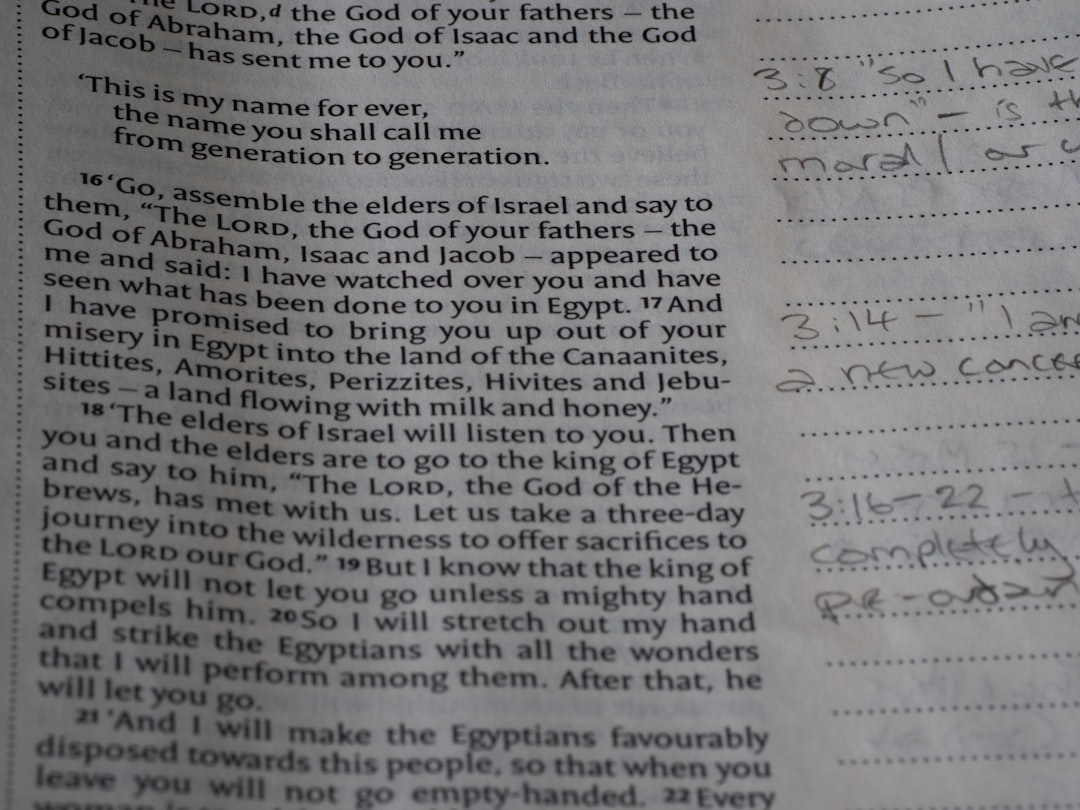 The LORD,d the God of your fathers – the
God of Abraham, the God of Isaac and the God
of Jacob – has sent me to you.”
‘This is my name for ever,
the name you shall call me
from generation to generation.
16 ‘Go, assemble the elders of Israel and say to
them, “The LORD, the God of your fathers – the
God of Abraham, Isaac and Jacob – appeared to
me and said: I have watched over you and have
seen what has been done to you in Egypt. 17 And
I have promised to bring you up out of your
misery in Egypt into the land of the Canaanites,
Hittites, Amorites, Perizzites, Hivites and Jebu-
sites – a land flowing with milk and honey.”
18 ‘The elders of Israel will listen to you. Then
you and the elders are to go to the king of Egypt
and say to him, “The LORD, the God of the He-
brews, has met with us. Let us take a three-day
journey into the wilderness to offer sacrifices to
the LORD our God.” 19 But I know that the king of
Egypt will not let you go unless a mighty hand
compels him. 20 So I will stretch out my hand
and strike the Egyptians with all the wonders
that I will perform among them. After that, he
will let you go.
21 ‘And I will make the Egyptians favourably
disposed towards this people, so that when you
leave you will not go empty-handed. 22 Every
woman is
3:8 "So I have
down" – is
moral / or
3:14 – "I am
a new
3:16–22 –
completely